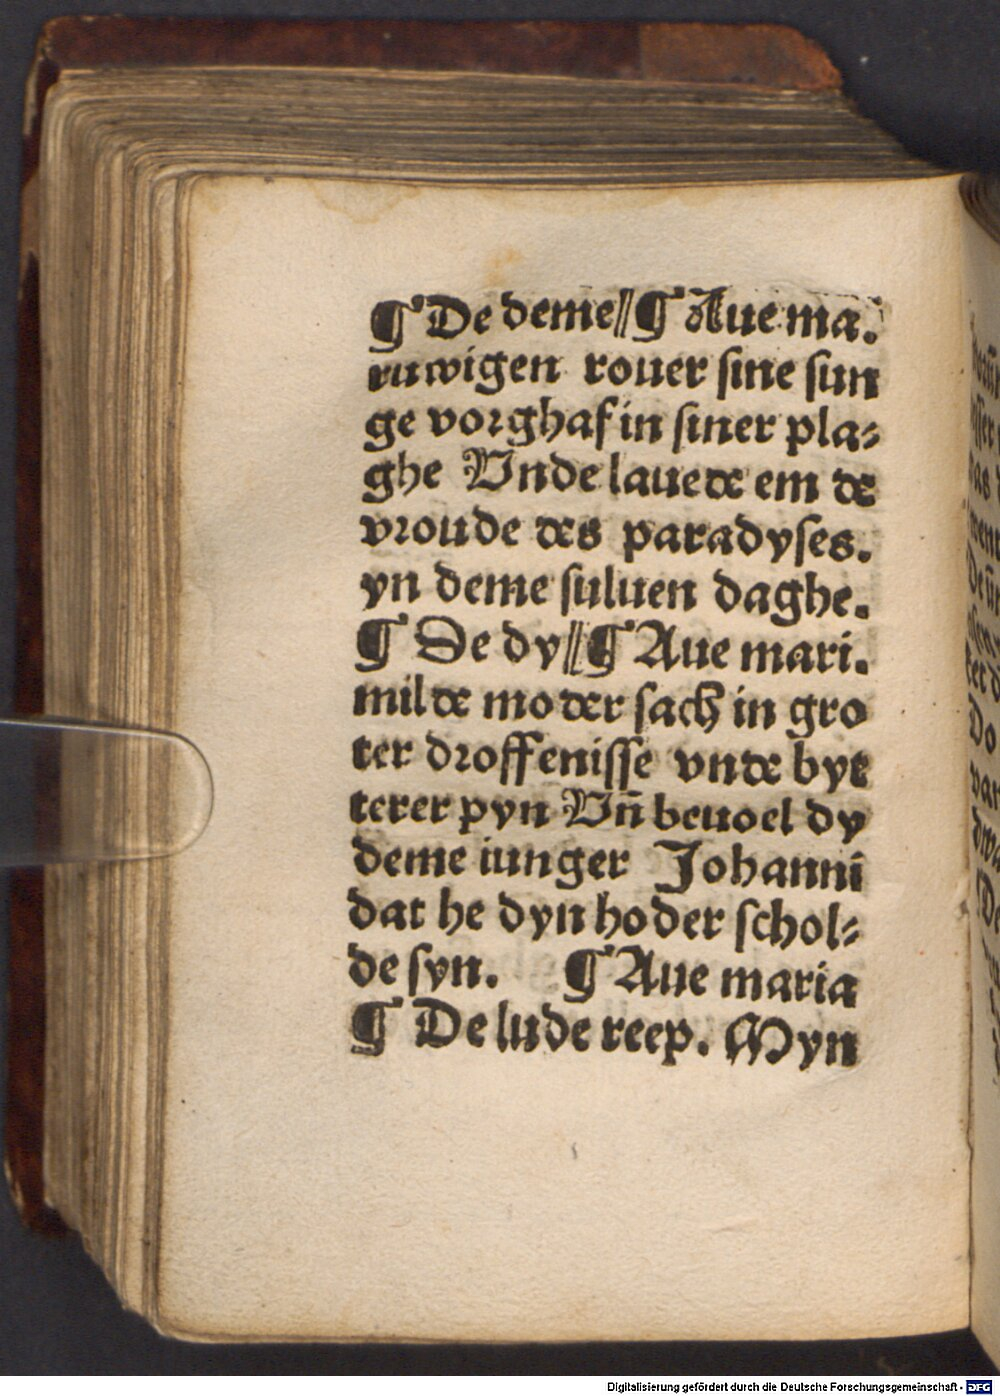 ¶ De deme // ¶ Aue ma.
ruwigen rouer sine sun
ge vorghaf in siner pla⸗
ghe Vnde lauede em de
vroude des paradyses.
yn deme suluen daghe.
¶ De dy // ¶ Aue mari.
milde moder sach in gro
ter droffenisse vnde byt
terer pyn Vn̄ beuoel dy
deme iunger Johanni
dat he dyn hoder schol⸗
de syn. ¶ Aue maria
¶ De lude reep. Myn
Digitalisierung gefördert durch die Deutsche Forschungsgemeinschaft - DFG